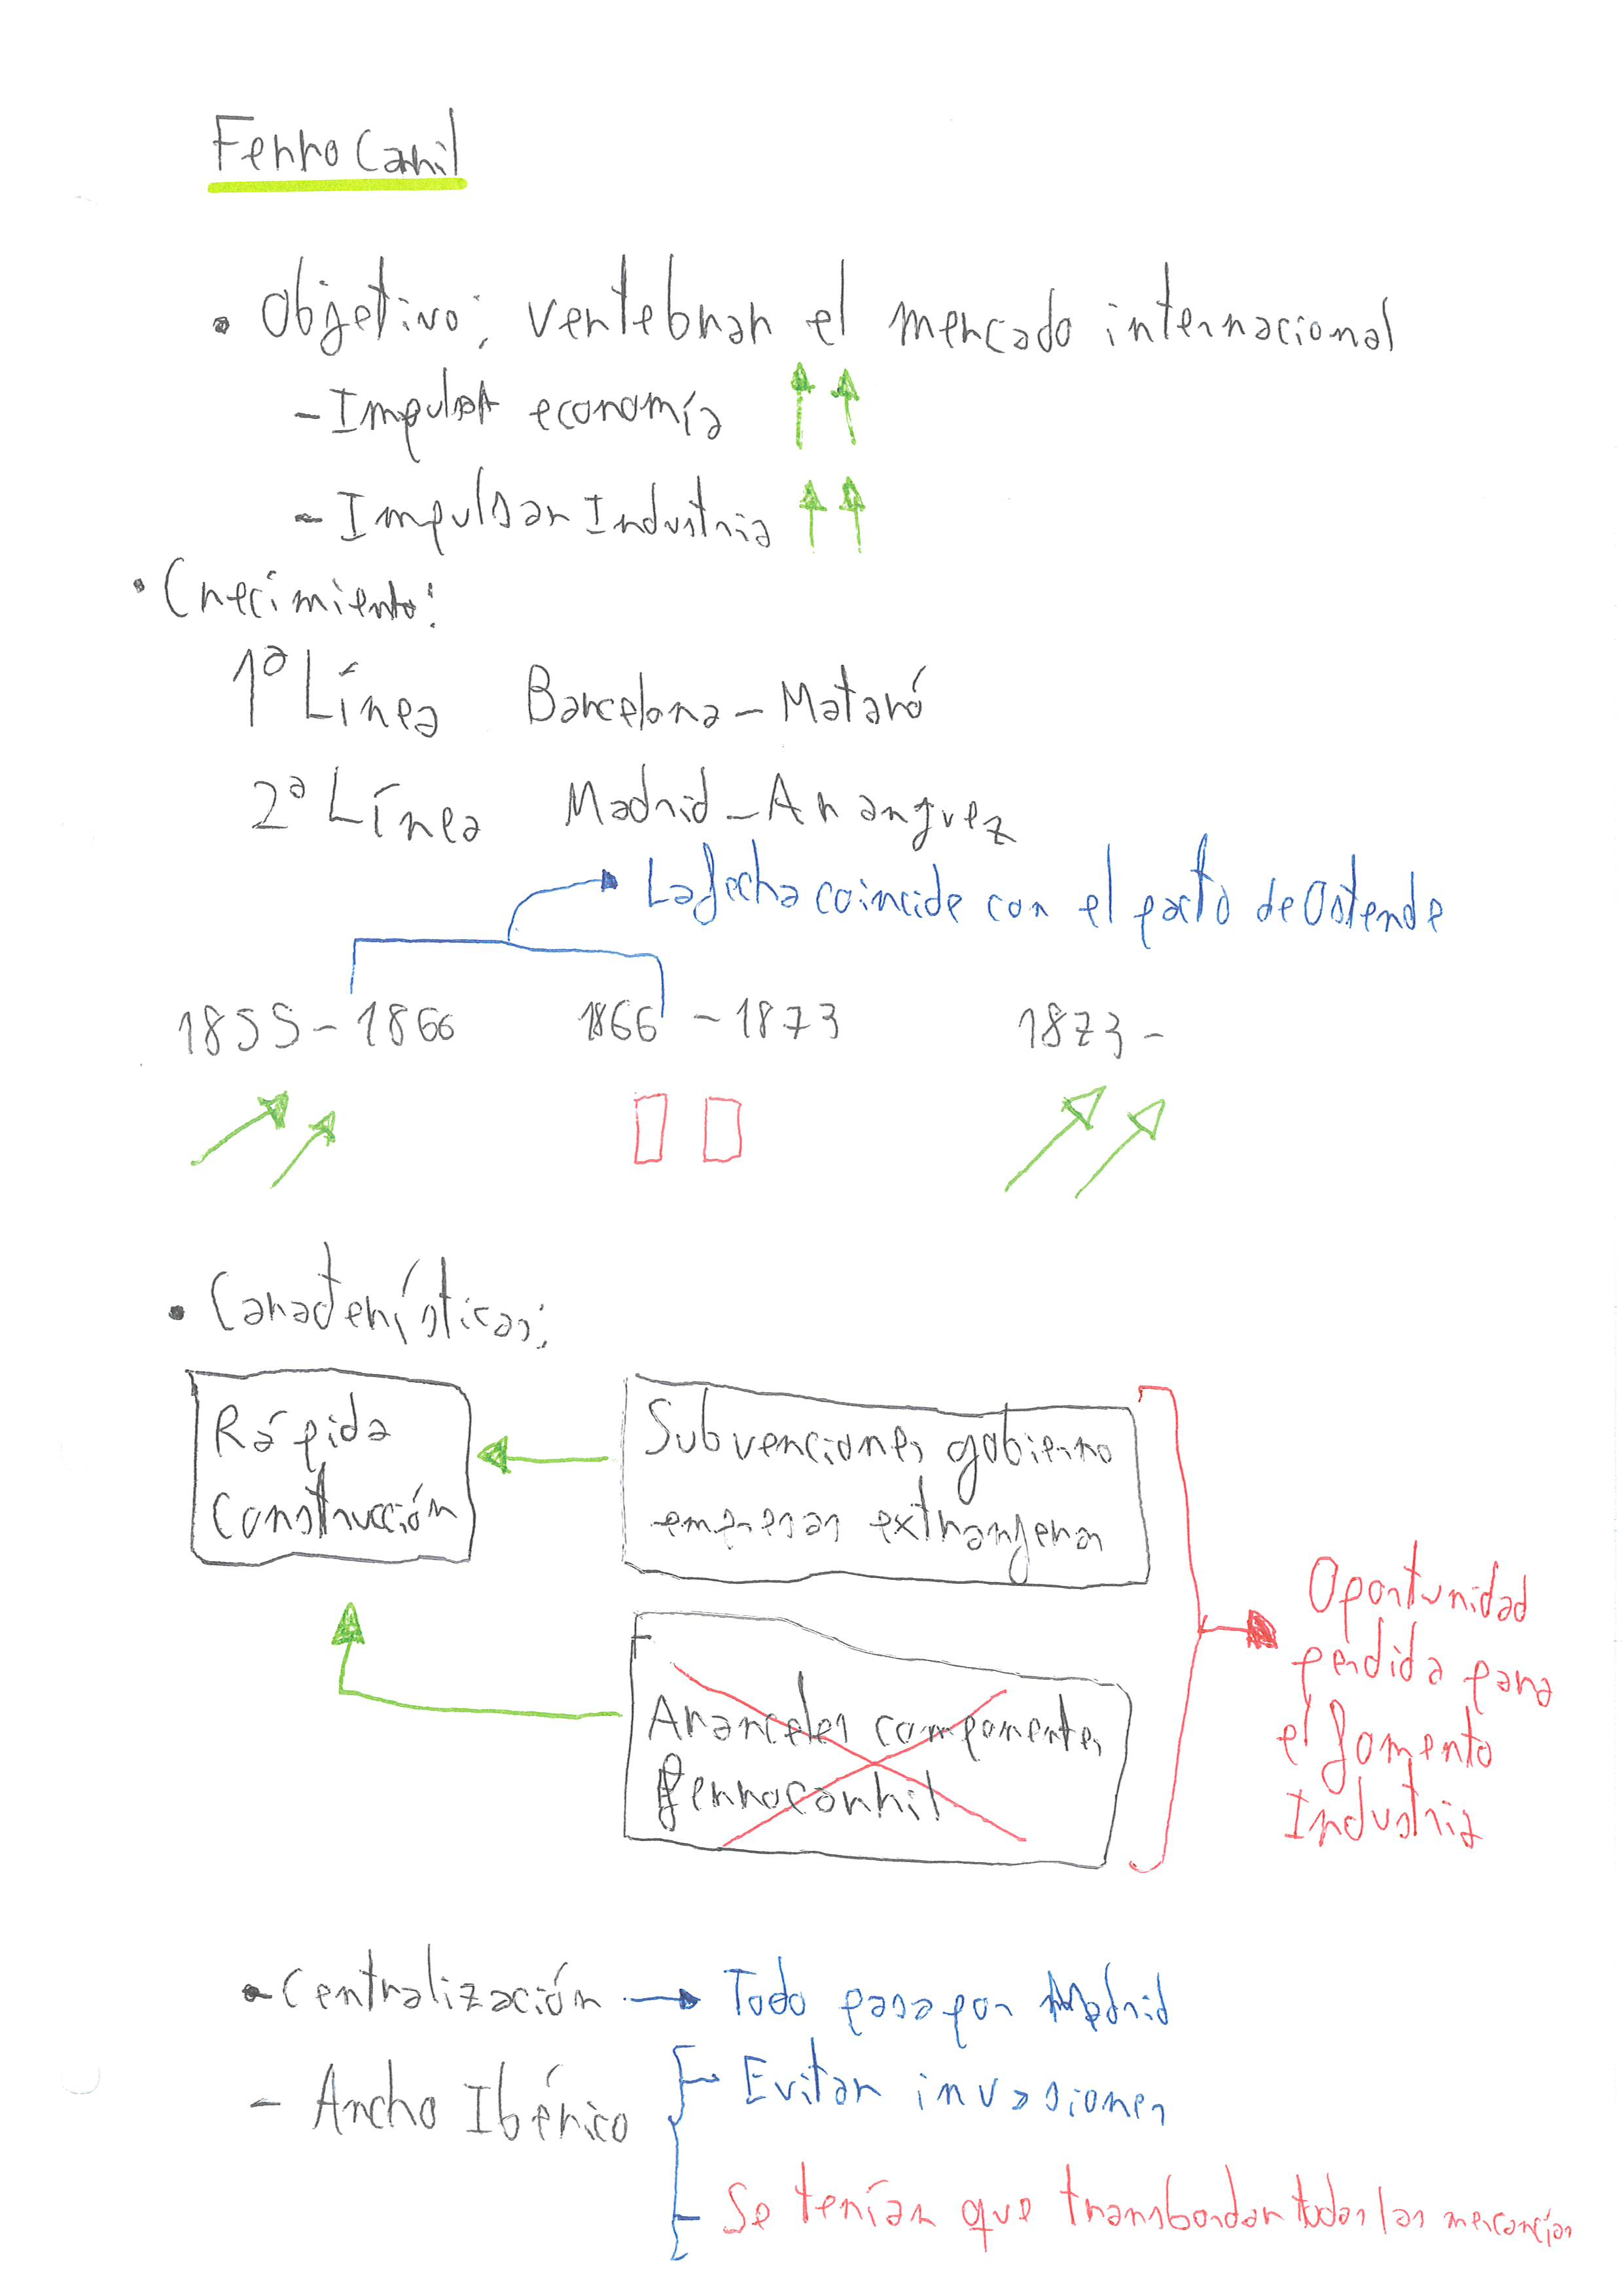 Ferrocarril
• Objetivo: vertebrar el mercado internacional
- Impulsar economía
- Impulsar Industria
• Crecimiento:
1ª Línea Barcelona - Mataró
2ª Línea Madrid - Aranguez
La fecha coincide con el pacto de Ostende
1855 - 1866 1866 - 1873 1873 -
• Características:
Rápida
construcción
Subvenciones gobierno
empresas extranjeras
Aranceles componentes
ferrocarril
Oportunidad
perdida para
el fomento
Industria
- Centralización → Todo pasa por Madrid
- Ancho Ibérico
- Evitar invasiones
- Se tenían que transbordar todas las mercancías